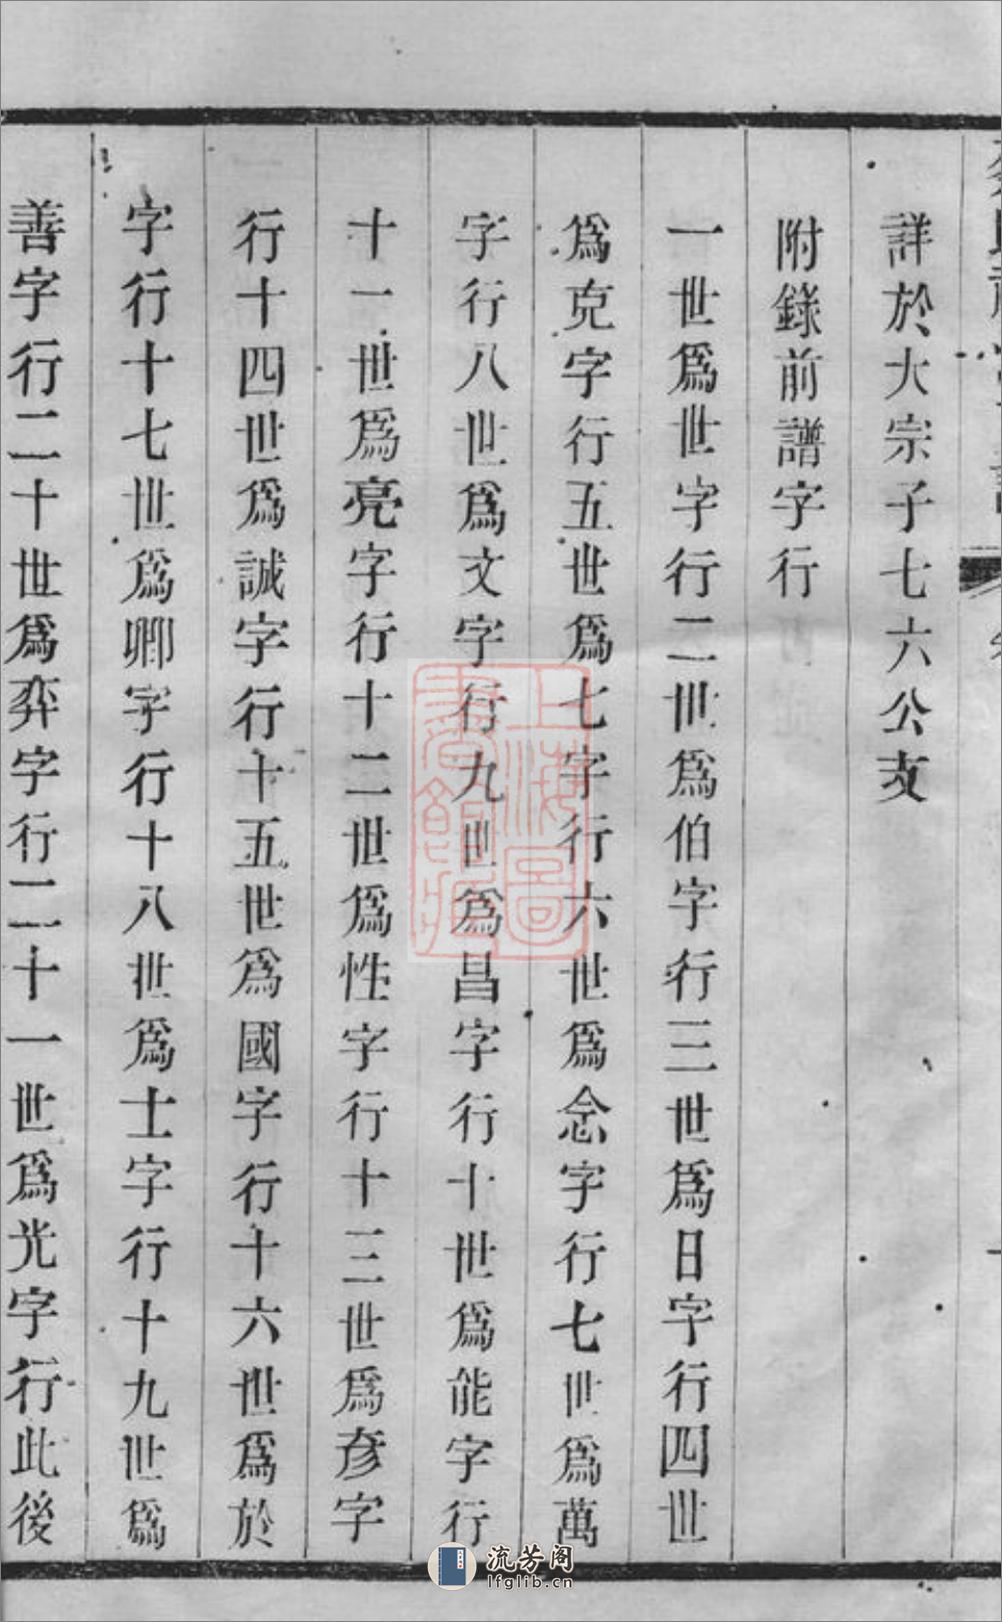 詳於大宗子七六公支
附錄前譜字行
一世爲世字行二世爲伯字行三世爲日字行四世
爲克字行五世爲七字行六世爲念字行七世爲萬
字行八世爲文字行九世爲昌字行十世爲能字行
十一世爲亮字行十二世爲性字行十三世爲彥字
行十四世爲誠字行十五世爲國字行十六世爲於
字行十七世爲卿字行十八世爲士字行十九世爲
善字行二十世爲弈字行二十一世爲光字行此後
上海圖
書館藏
流芳阁
lfglib.cn